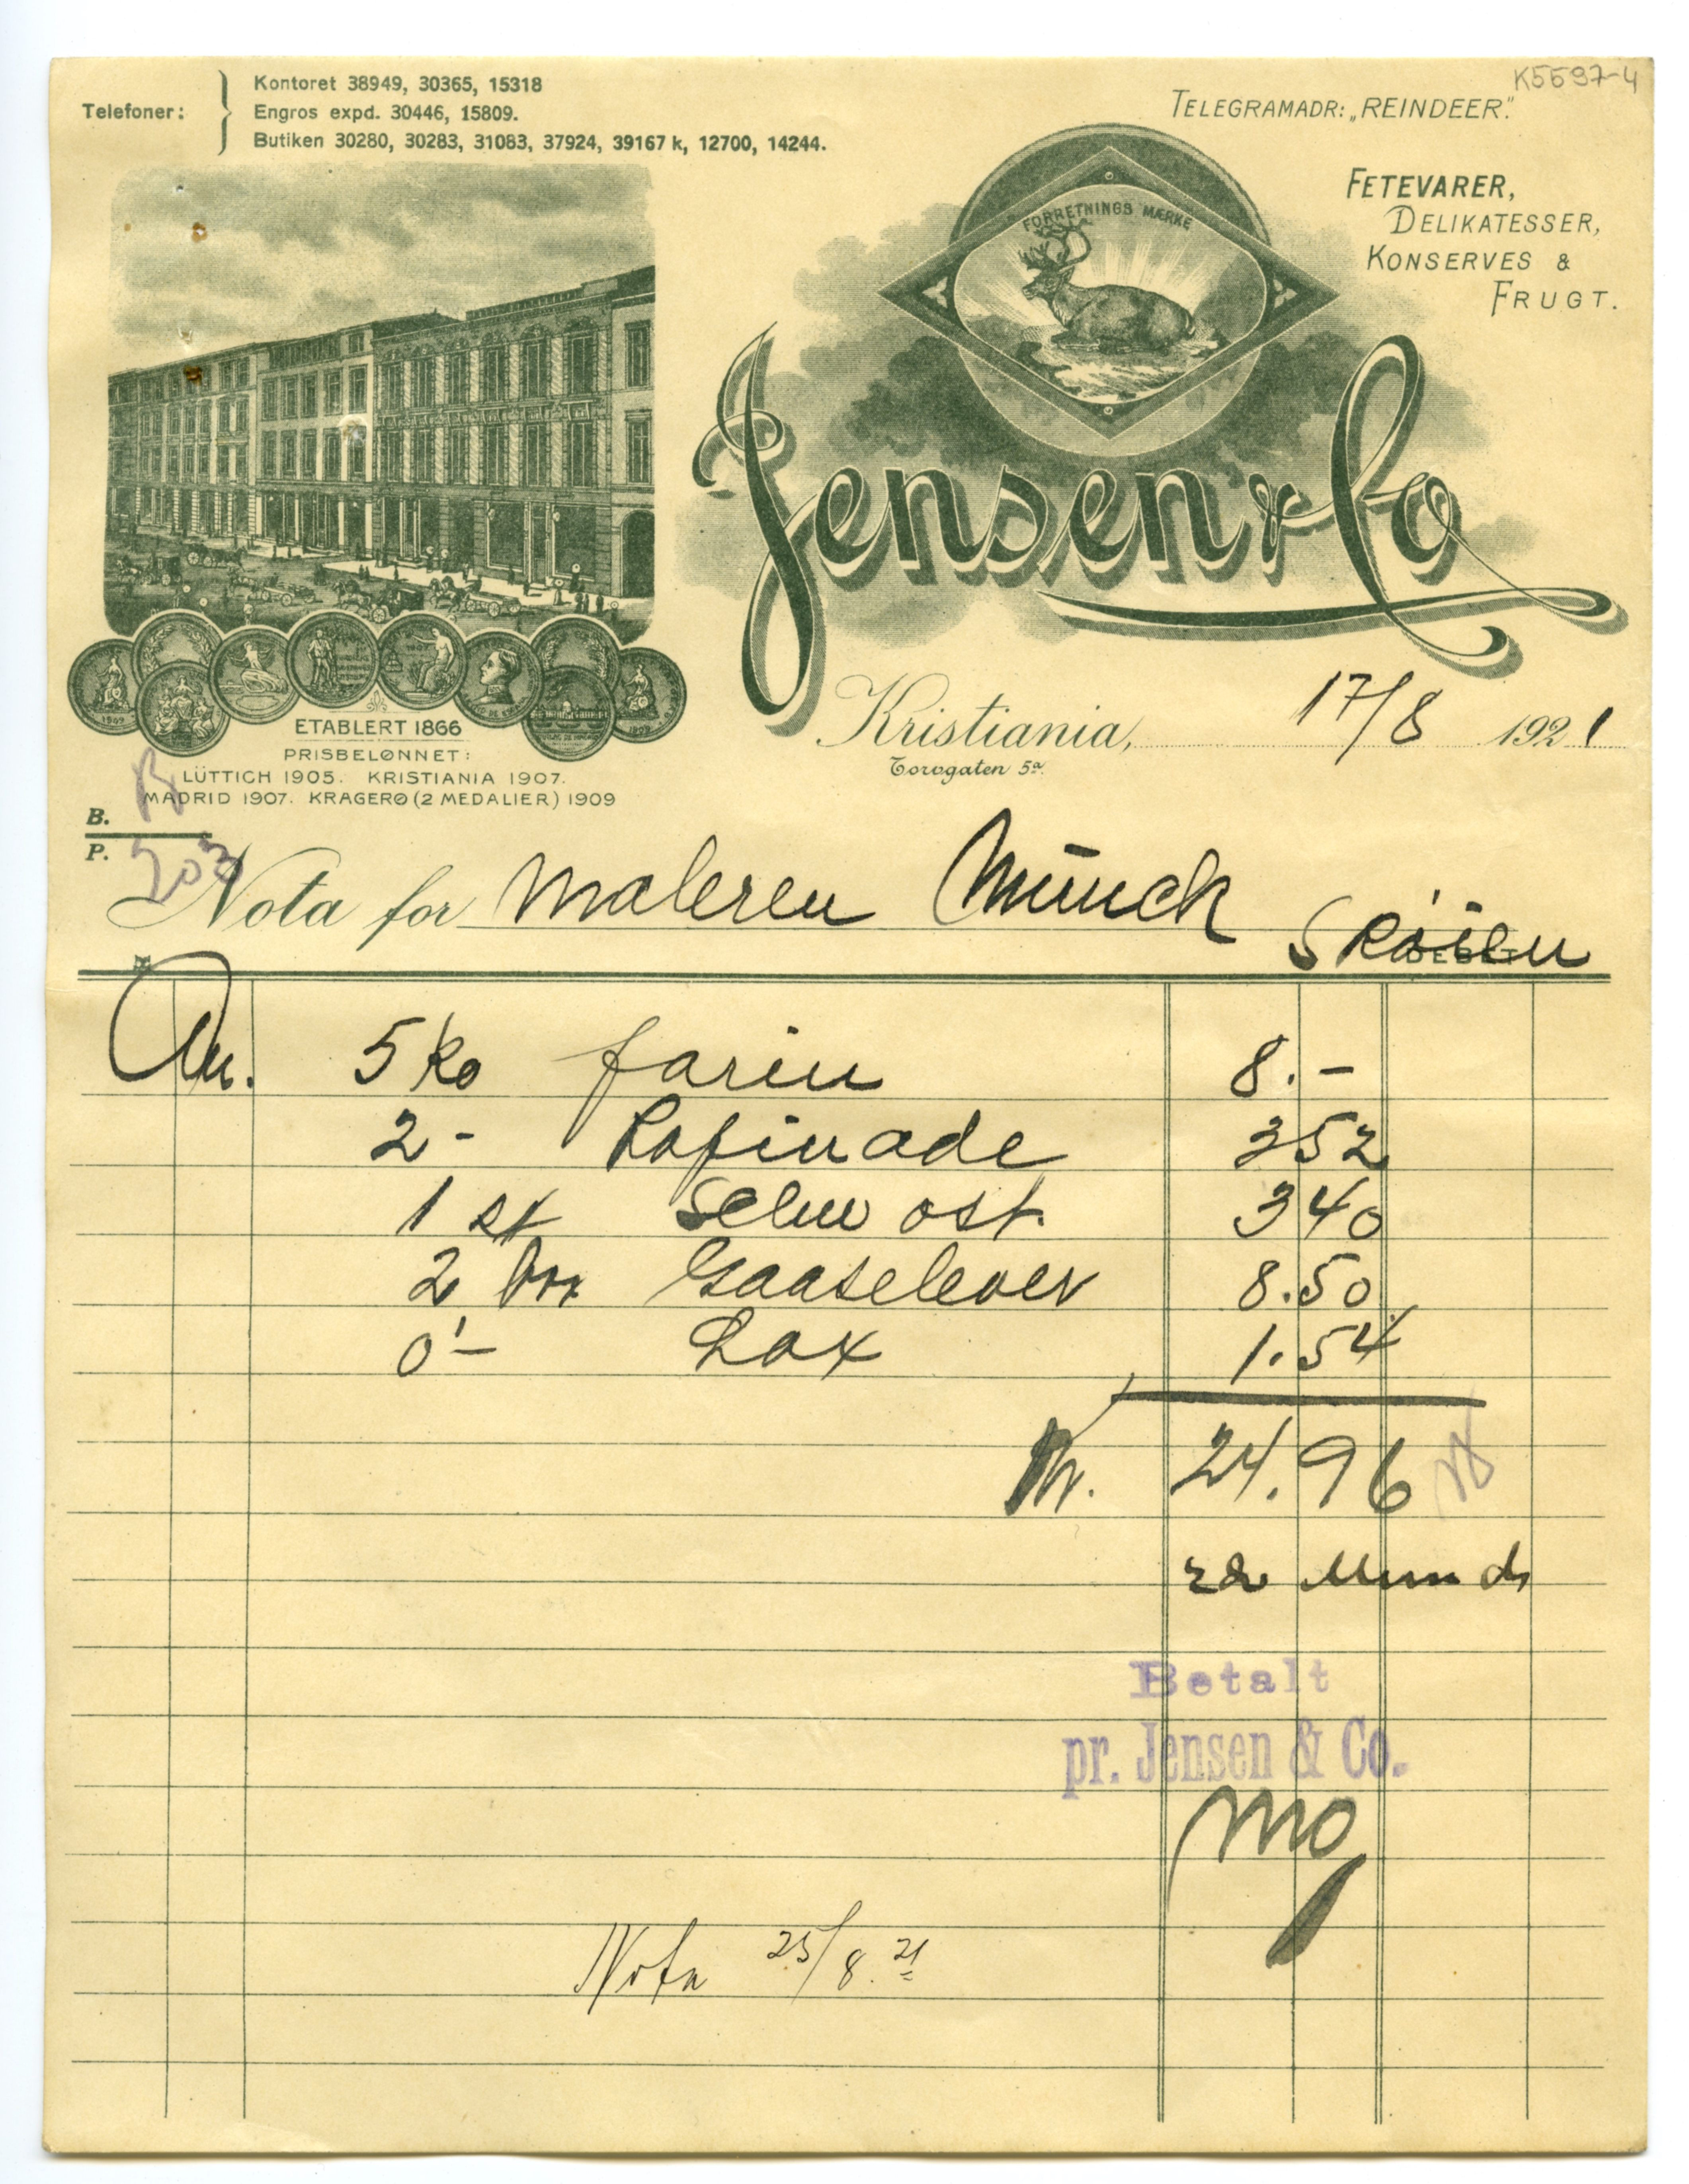 K5597-4
Telefoner:
Kontoret 38949, 30365, 15318
Engros expd. 30446, 15809.
Butiken 30280, 30283, 31083, 37924, 39167 k, 12700, 14244.
TELEGRAMADR: „REINDEER".
FETEVARER,
DELIKATESSER,
KONSERVES &
FRUGT.
FORRETNINGS MÆRKE
Jensen & Co
ETABLERT 1866
PRISBELØNNET:
LÜTTICH 1905. KRISTIANIA 1907.
MADRID 1907. KRAGERØ (2 MEDALIER) 1909
Kristiania, 17/8 1921
Torvgaten 5a.
B.
P. 203
Nota for Maleren Münck Skøien
DEBET
5 ko farin 8.-
2 - Rafinade 352
1 st ost. 340
2 Gaaselever 8.50
Lax 1.54
Kr. 24.96
Betalt
pr. Jensen & Co.
Mo
Nota 25/8. 21